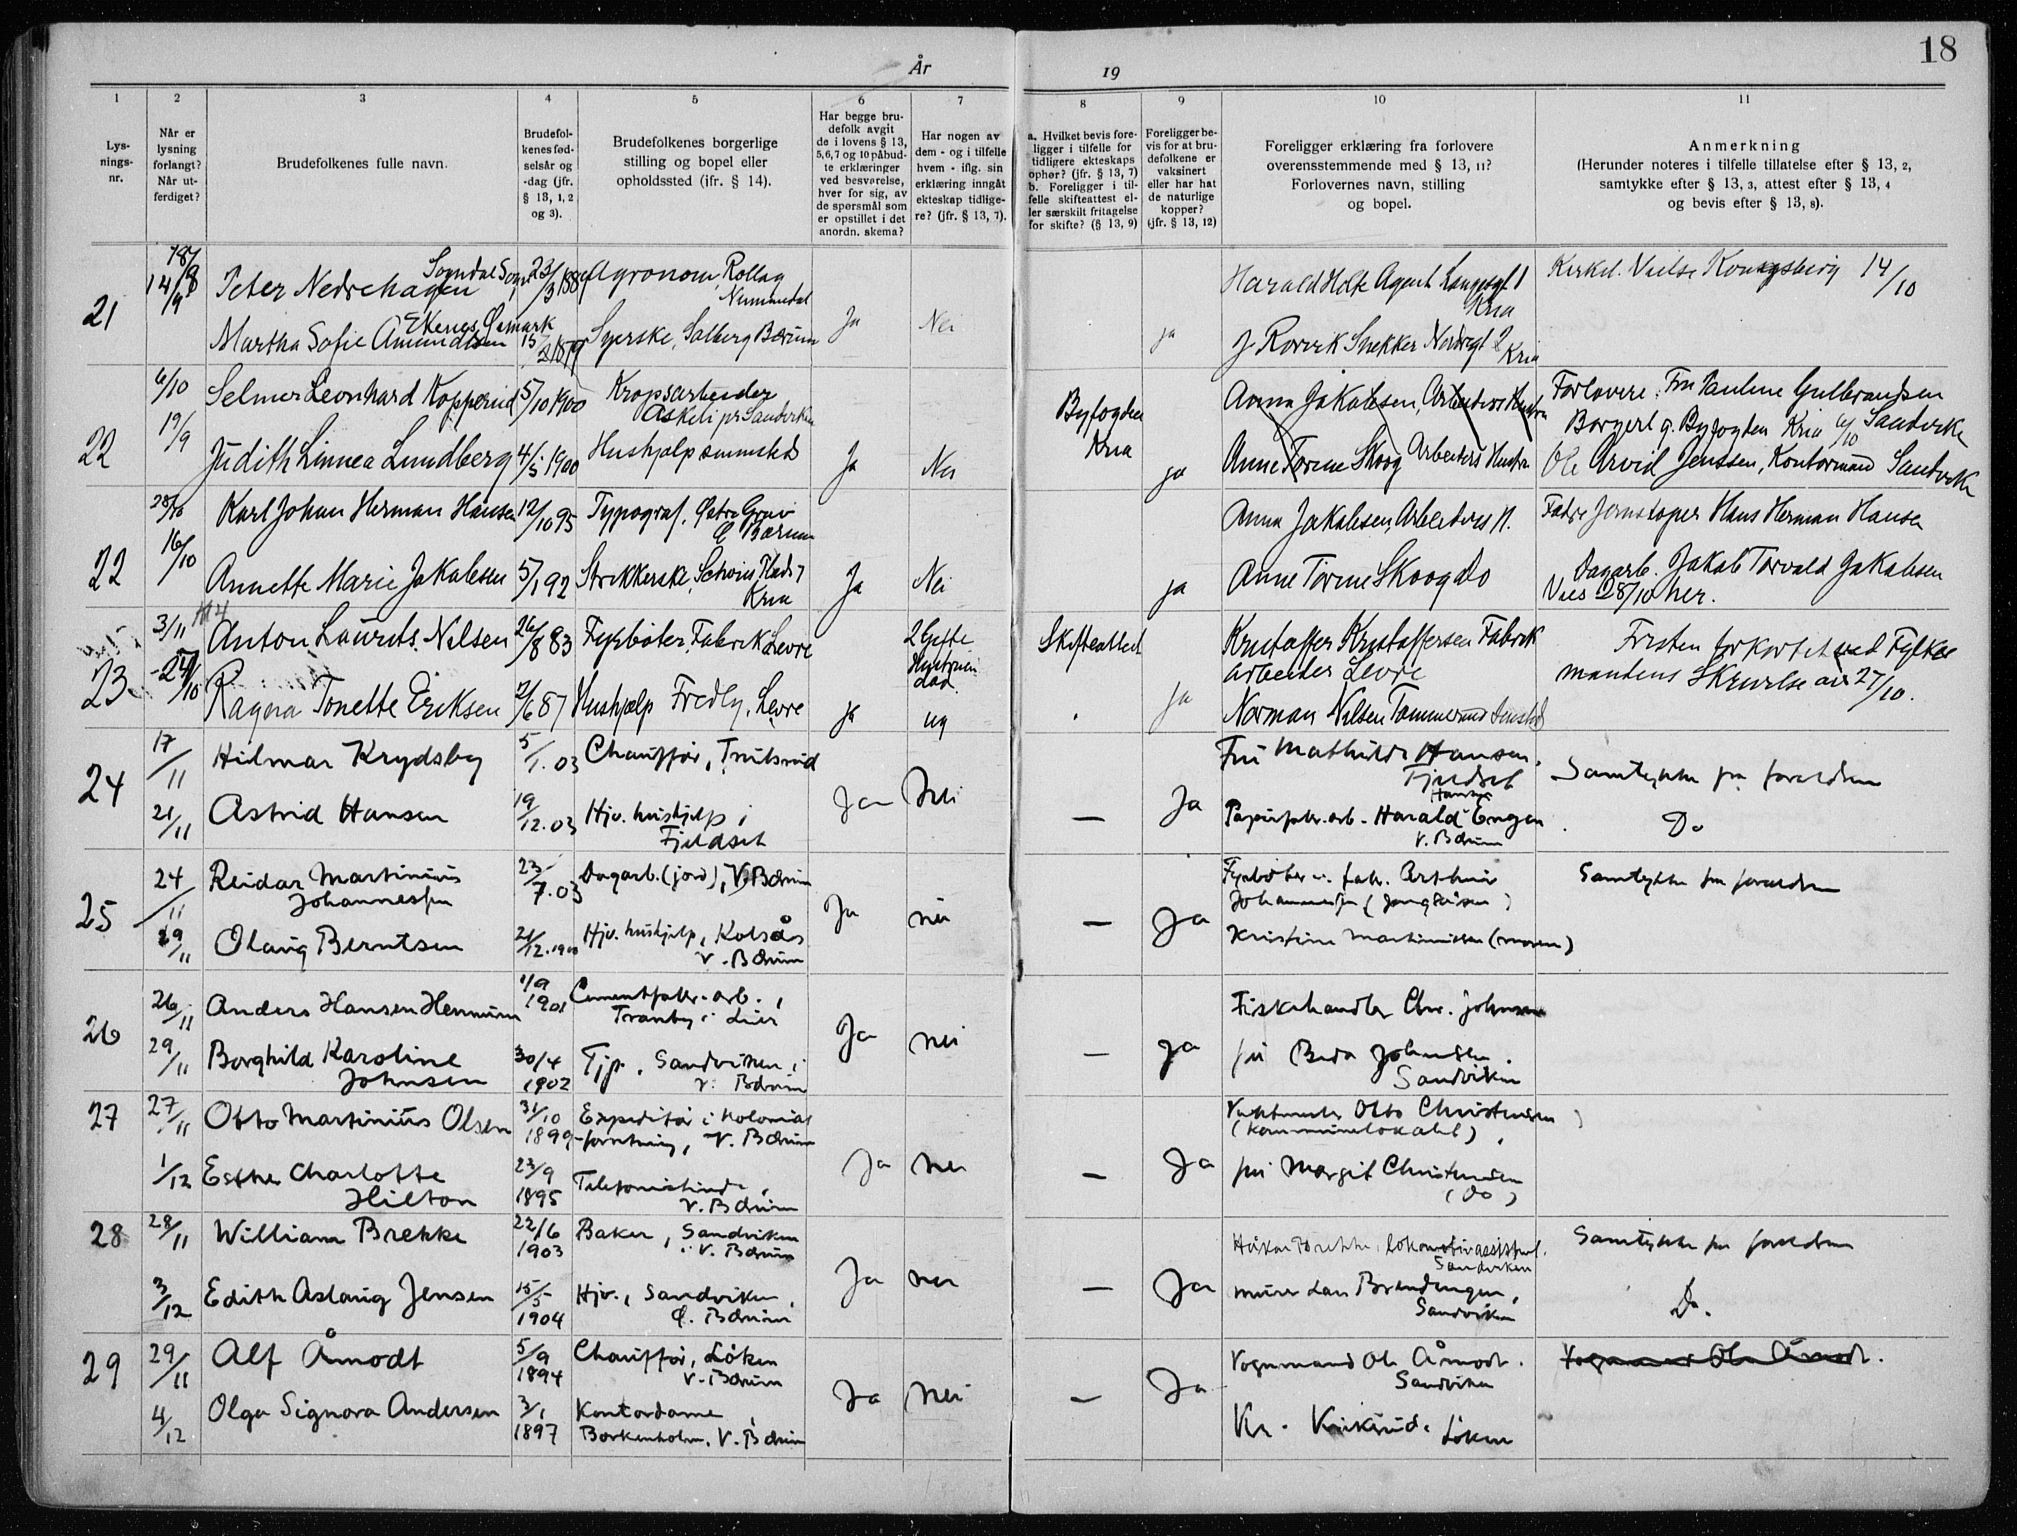 18
År 19
1 2 3 4 5 6 7 8 9 10 11
Lys-
nings-
nr.
Når er
lysning
forlangt?
Når ut-
ferdiget?
Brudefolkenes fulle navn.
Brudefol-
kenes fød-
selsår og
-dag (jfr.
§ 13, 1, 2
og 3).
Brudefolkenes borgerlige
stilling og bopel eller
opholdssted (ifr. § 14).
Har begge bru-
defolk avgit
de i lovens § 13,
5,6,7 og 10 påbud-
te erklæringer
ved besvarelse,
hver for sig, av
de spørsmål som
er opstillet i det
anordn. skema?
Har nogen av
dem - og i tilfelle
hvem - iflg. sin
erklæring inngåt
ekteskap tidlige-
re? (jfr. § 13, 7).
a. Hvilket bevis fore-
ligger i tilfelle for
tidligere ekteskaps
ophør? (jfr. § 13, 7)
b. Foreligger i til-
felle skifteattest el-
ler særskilt fritagelse
for skifte? (§ 13, 9)
Foreligger be-
vis for at bru-
defolkene er
vaksinert
eller har hat
de naturlige
kopper?
(jfr. § 13, 12)
Foreligger erklæring fra forlovere
overensstemmende med § 13, 11?
Forlovernes navn, stilling
og bopel.
Anmerkning
(Herunder noteres i tilfelle tillatelse efter § 13, 2,
samtykke efter § 13, 3, attest efter § 13, 4
og bevis efter § 13, 8).
21
14/9
Peter Nedrehagen
Agronom, Rollag
Numedal
Martha Sofie Amundsen
Syerske, Solberg Bærum
Ja Nei ja
Harald Holte Agent
Kria
J Rorvik Snekker
Kria
Kongsberg 14/10
22
6/10
19/9
Selmer Leonhard Kopperud 5/10 1900
Kropsarbeider
Judith Linnea Lundberg 4/5 1900
Hushjælp sammested
Ja Nei
Byfogden
Kria
ja
Anna Jakobsen, Arbeiders Hustru
Anne Torine Skoog Arbeiders Hustru
Forlovere: Fru Pauline Gulbrandsen
Borgerl v. Byfogden Kria 6/10 Sandvika
Ole Arvid Jenssen, Kontormand Sandvika
22
28/10
16/10
Karl Johan Herman Hansen 12/10 95
Typograf, Østre
Bærum
Annette Marie Jakobsen 5/1 92
Strikkerske, Schous Plads 7
Kria
Ja Nei ja
Anna Jakobsen, Arbeiders H.
Anne Torine Skoog do
Hans Herman Hansen
Dagarb. Jakob Torvald Jakobsen
Vies 28/10 her.
23
3/11
27/10
Anton Laurits Nilsen 26/8 83
Fyrbøter, Fabrik Levre
Ragna Tonette Eriksen 2/6 87
Hushjælp Fredly, Levre
ja
2 Gifte
Hustruen
død
ug
Skifteattest
Ja
Kristoffer Kristoffersen Fabrik
arbeider Levre
Norman Nilsen
Fristen forkortet ved Fylkes
mandens Skrivelse av 27/10.
24
17/11
21/11
Hilmar Krydsby 5/1.03
Chauffør,
Astrid Hansen 19/12.03
Hjv. hushjelp i
Fjeldset
Ja nei — Ja
Fru Mathilde Hansen.
Fjeldset
Papirfabr. arb. Harald Engen
V. Bærum
Samtykke fra foreldrene
Do
25
24/11
29/11
Reidar Martinius
Johannessen
23/7.03
Dagarb. (jord), V. Bærum
Olaug Berntsen 21/12.1900
Hjv. hushjelp, Kolsås
V. Bærum
Ja nei — Ja
Fyrbøter v. fabr. Arthur
Johannessen
Kristine Martinussen (moren)
Samtykke fra foreldrene
26
26/11
29/11
Anders Hansen Hennum 1/9 1901
Cementfabr. arb.,
Tranby i Lier
Borghild Karoline
Johnsen
30/4
1902
Tjp., Sandviken i
V. Bærum
Ja nei — Ja
Fiskehandler Chr. Johnsen
fru Johnsen.
Sandviken
27
27/11
1/12
Otto Martinius Olsen 31/10
1899
Expeditør i kolonial
forretning, V. Bærum
Esther Charlotte
Hilton
23/9
1895
Telefonistinde,
V. Bærum
Ja nei — Ja
Vaktmester Otto Christensen
(Kommunelokalet),
fru Margit Christensen
(do)
28
28/11
3/12
William Brekke 22/6
1903
Baker, Sandviken
i V. Bærum
Edith Aslaug Jensen 15/5
1904
Hjv., Sandviken,
Ø. Bærum
Ja nei — Ja
Håkon Brekke, lokomotivassistent.
Sandviken
murer Lars Brendengen,
Sandviken
Samtykke fra foreldrene
Do.
29
29/11
4/12
Alf Åmodt 5/9
1894
Chauffør, Løken
V. Bærum
Olga Signora Andersen 3/1
1897
Kontordame,
Borkenholm, V. Bærum
Ja nei — Ja
Vognmand Ole Åmodt.
Sandviken
Kr. Løken
Vognmand Ole Åmodt.